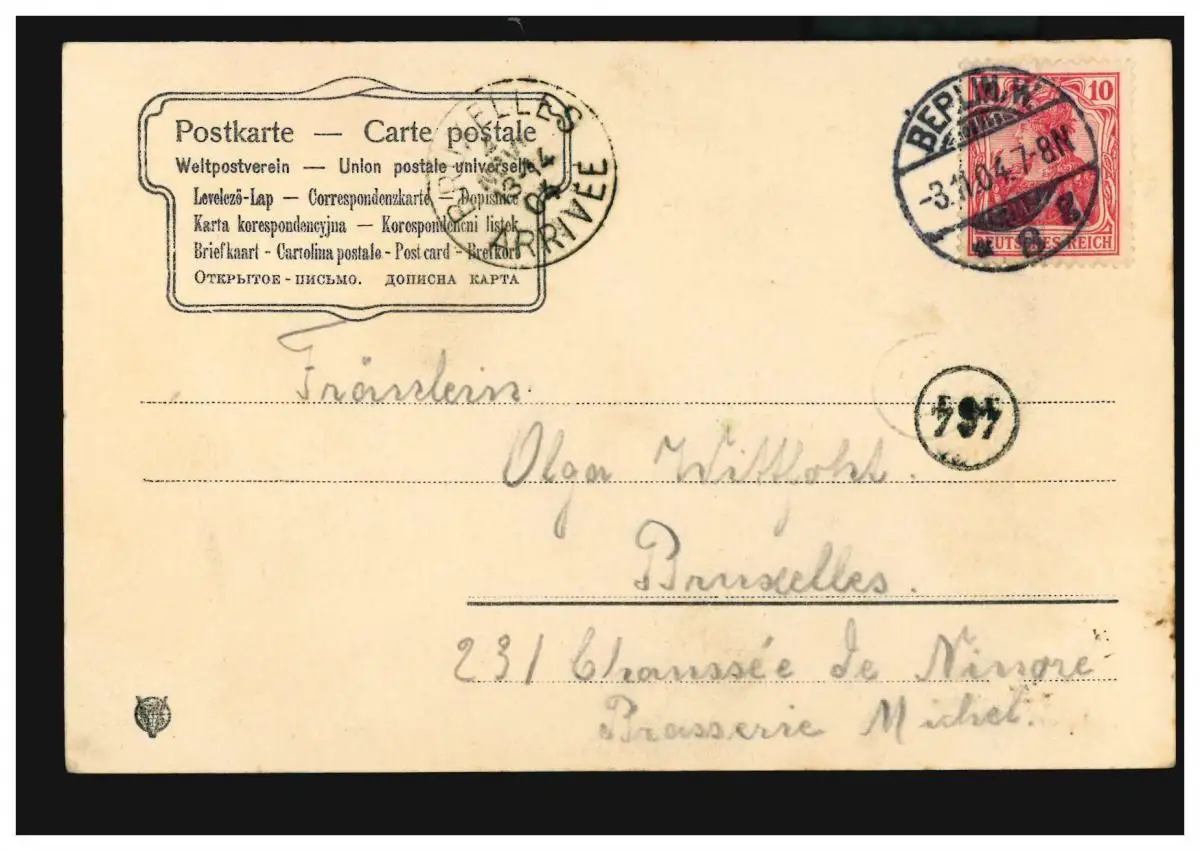 Postkarte — Carte postale
Weltpostverein — Union postale universelle
Levelező-Lap — Correspondenzkarte — Dopisnice
Karta korespondencyjna — Korespondencni listek
Briefkaart - Cartolina postale - Post card - Brefkort
ОТКРЫТОЕ - ПИСЬМО. ДОПИСНА КАРТА
BRUXELLES
13-14
04
ARRIVÉE
BERLIN.W.
-3.11.04.7-8N
* 8 g
10
DEUTSCHES REICH
Fräulein
Olga Wittfoht.
Bruxelles.
231 Chaussée de Ninove
Brasserie Michel.